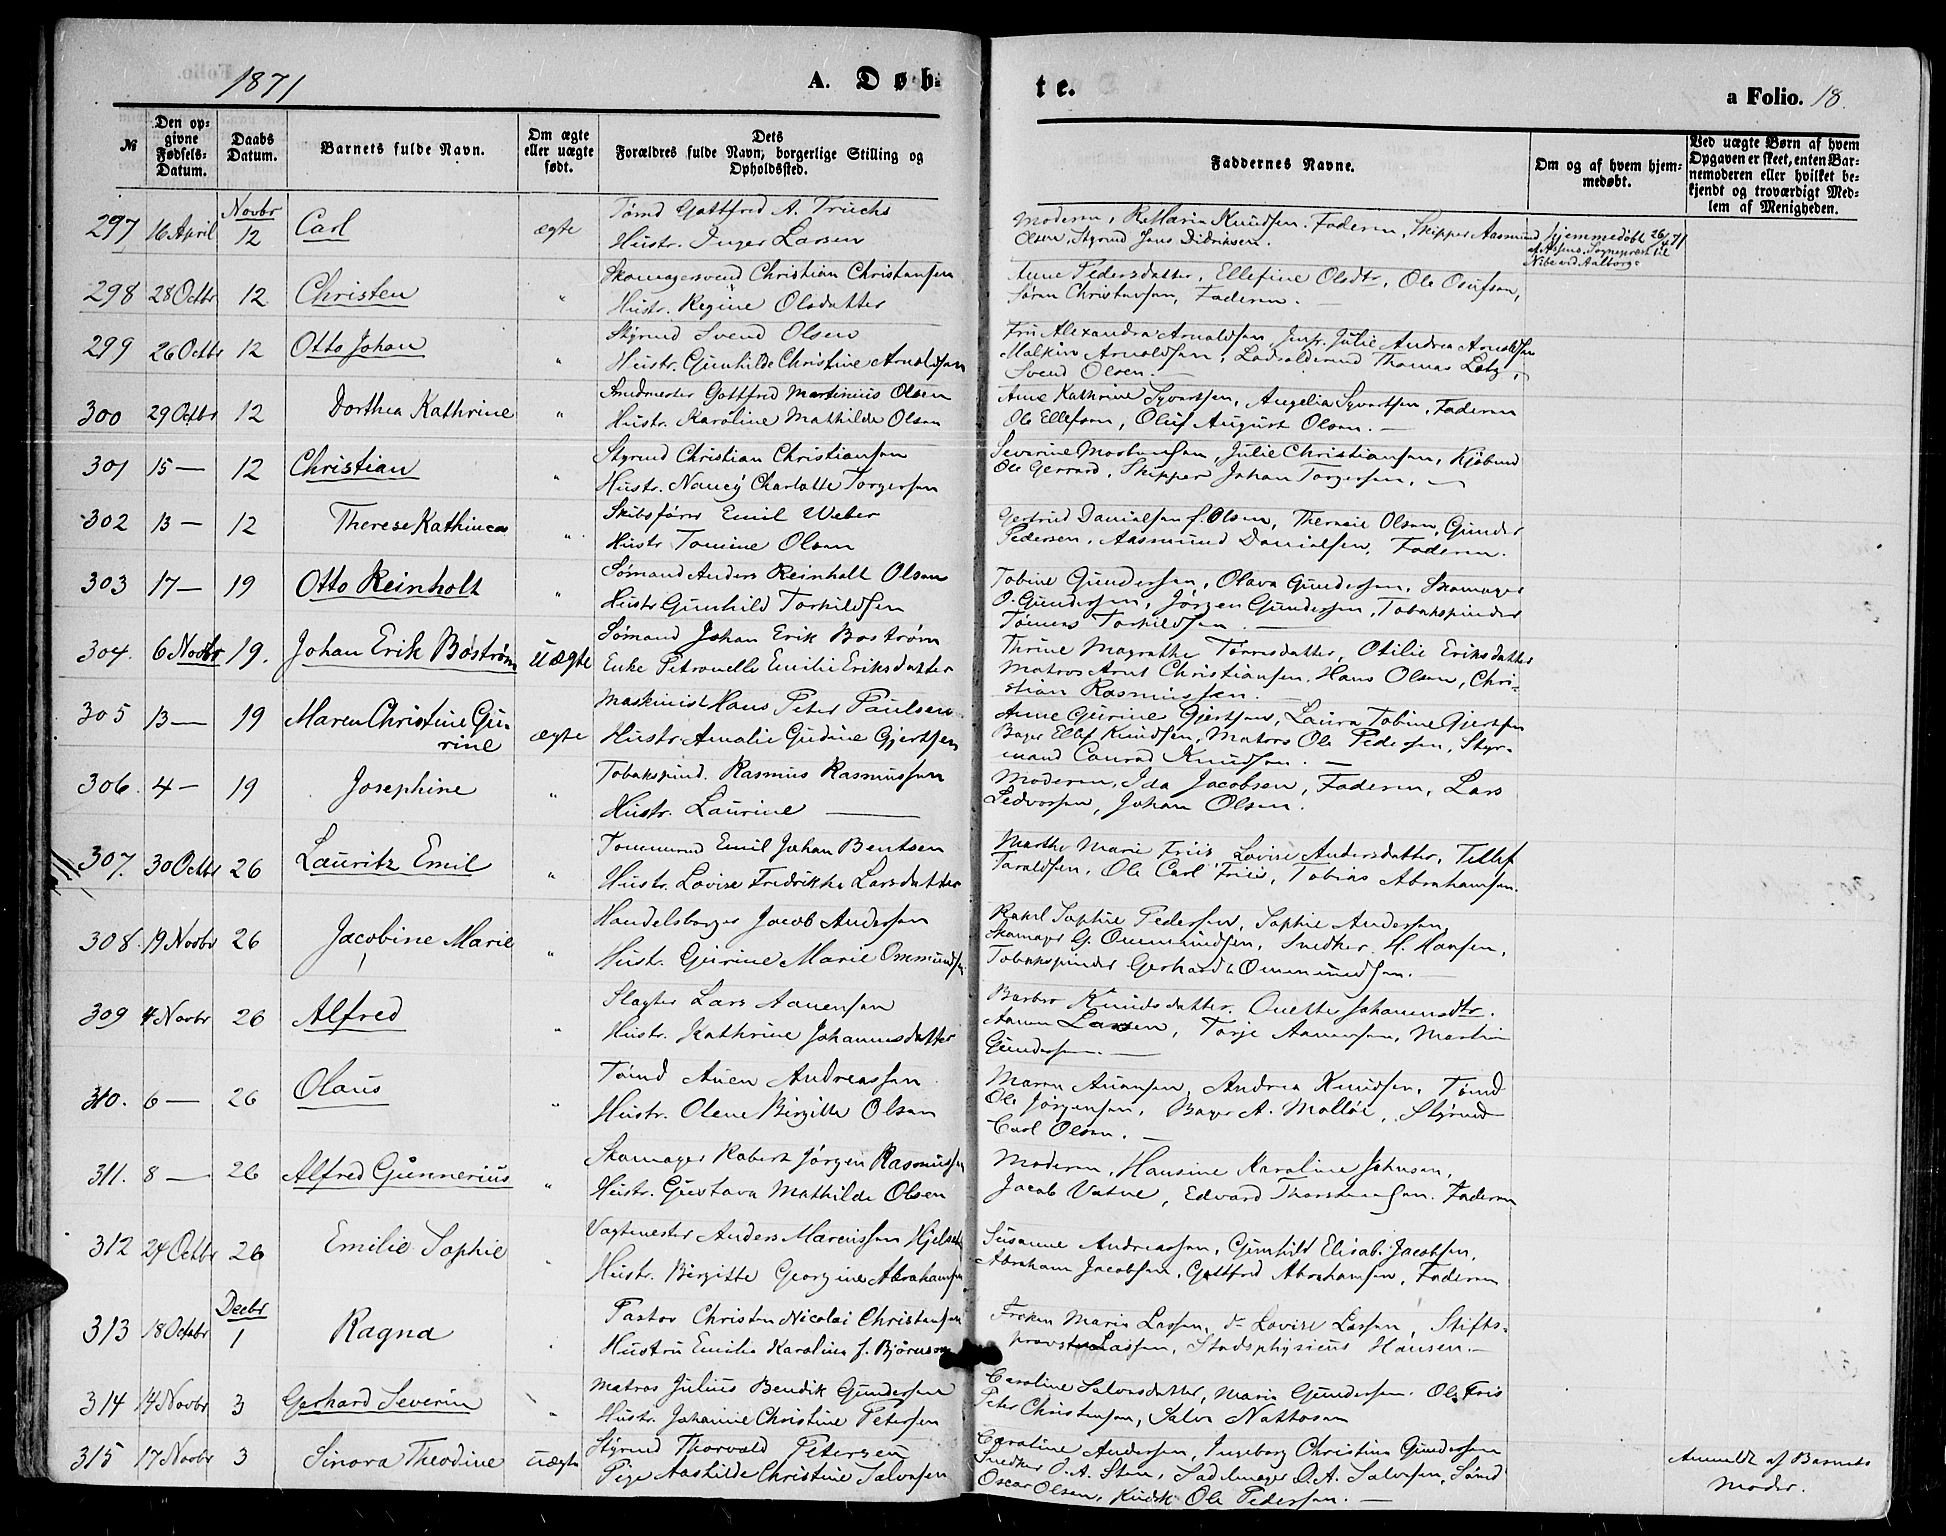 1871
A. Døb-
te.
a Folio. 18.
№
Den op-
givne
Fødsels-
Datum.
Daabs
Datum.
Barnets fulde Navn.
Om ægte
eller uægte
født.
Dets
Forældres fulde Navn, borgerlige Stilling og
Opholdssted.
Faddernes Navne.
Om og af hvem hjem-
medøbt.
Ved uægte Børn af hvem
Opgaven er skeet, enten Bar-
nemoderen eller hvilket be-
kjendt og troværdigt Med-
lem af Menigheden.
Novbr
297 16 April 12 Carl ægte
Tømd Gottfred A. Truchs
Hustr. Inger Larsen
Moderen, Knudsen. Faderen, Skipper Aasmund
Olsen, Styrmd Jens Didriksen.
hjemmedøbt 26/4 71
af Assens, Sognepræst til
Nibe ved Aalborg
298 28 Octbr 12 Christen "
Skomagersvend Christian Christensen
Hustr. Regine Olsdatter
Anne Pedersdatter, Ellefine Olsdtr, Ole Osufsen,
Søren Christensen, Faderen.
299 26 Octbr 12 Otto Johan "
Styrmd Svend Olsen
Hustr. Gunhilde Christine Arnoldsen
Fru Alexandra Arnoldsen, Jmfr. Julie Andrea Arnoldsen
Malkin Arnoldsen, Thomas Lotz,
Svend Olsen.
300 29 Octbr 12 Dorthea Kathrine "
Smedmester Gottfred Martinius Olsen
Hustr. Karoline Mathilde Olsen
Anne Kathrine Syvertsen, Angelia Syvertsen, Faderen
Ole Ellefsen, Oluf August Olsen.
301 15 — 12 Christian "
Styrmd Christian Christiansen
Hustr. Nancy Charlotte Torgersen
Severine Mortensen, Julie Christiansen, Kjøbmd
Ole Gerrard, Skipper Johan Torgersen.
302 13 — 12 Therese Kathinca "
Skibsfører Emil Weber
Hustr Tomine Olsen
Gertrud Danielsen f. Olsen, Therese Olsen, Gunder
Pedersen, Aasmund Danielsen, Faderen.
303 17 — 19 Otto Reinholt "
Sømand Anders Reinholt Olsen
Hustr Gunhild Torkildsen
Tobine Gundersen, Olava Gundersen, Skomager
O. Gundersen, Jørgen Gundersen, Tobakspinder
Tønnes Torkildsen.
304. 6 Novbr 19. Johan Erik Bostrøm uægte
Sømand Johan Erik Bostrøm
Enke Petronelle Emilie Eriksdatter
Thrine Magrethe Tønnesdatter, Otilie Eriksdatter
Matros Arnt Christiansen, Hans Olsen, Chri-
stian Rasmussen.
305 13 — 19 Maren Christine Gu-
rine ægte
Maskinist Hans Peter Paulsen
Hustr Amalie Gudine Gjertsen
Anne Gurine Gjertsen, Laura Tobine Gjertsen
Bager Ellef Knudsen, Matros Ole Pedersen, Styr-
mand Conrad Knudsen.
306. 4 — 19 Josephine "
Tobakspind. Rasmus Rasmussen
Hustr. Laurine —
Moderen, Ida Jacobsen, Faderen, Lars
Pedersen, Johan Olsen.
307. 30 Octbr 26 Lauritz Emil "
Tømmermd Emil Johan Bentsen
Hustr. Lovise Fredrikke Larsdatter
Marthe Marie Friis, Lovise Andersdatter, Tellef
Taraldsen, Ole Carl Friis, Tobias Abrahamsen.
308. 19 Novbr 26 Jacobine Marie "
Handelsborger Jacob Andersen
Hustr. Gurine Marie Ommundsen
Rakel Sophie Pedersen, Sophie Andersen,
Skomager G. Ommundsen, Snedker H. Hansen,
Tobakspinder Gerhard Ommundsen.
309 4 Novbr 26 Alfred "
Slagter Lars Aanensen
Hustr. Kathrine Johannesdatter
Barbro Knudsdatter. Onette Johannesdtr.
Aanen Larsen, Torje Aanensen, Martin
Gundersen.
310. 6 — 26 Olaus "
Tømd Auen Andreassen
Hustr. Olene Birgitte Olsen
Maren Auensen, Andrea Knudsen, Tømd
Ole Jørgensen, Bager A. Molløe, Styrmd
Carl Olsen.
311. 8 — 26 Alfred Gunnerius "
Skomager Robert Jørgen Rasmussen
Hustr. Gustava Mathilde Olsen
Moderen, Hansine Karoline Johnsen,
Jacob Vatne, Edvard Thorstensen. Faderen
312 24 Octbr 26 Emilie Sophie "
Vagtmester Anders Marcussen Hjelset
Hustr. Birgitte Georgine Abrahamsen
Susanne Andreassen, Gunhild Elisab. Jacobsen,
Abraham Jacobsen, Gottfred Abrahamsen, Faderen
Decbr
313 18 Octobr 1 Ragna "
Pastor Christen Nicolai Christensen
Hustru Emilie Karoline f. Bjørnson
Frøken Maria Lassen, do Lovise Lassen, Stifts-
provst Lassen, Stadsphysicus Hansen.
314 14 Novbr 3 Gerhard Severin "
Matros Julius Bendik Gundersen
Hustr. Johanne Christine Petersen
Caroline Salvesdatter, Marie Gundersen. Ole Friis
Peter Christensen, Salve Nattosen
315 17 Novbr 3 Sinora Theodine uægte
Styrmd Thorvald Petersen
Pige Aashilde Christine Salvesen
Caroline Andersen, Ingeborg Christine Gundersen
Snedker O. A. Steen, Sadelmager O. A. Salvesen, Sømd
Oscar Olsen, Kudsk Ole Pedersen.
Anmeldt af Barnets
Moder.